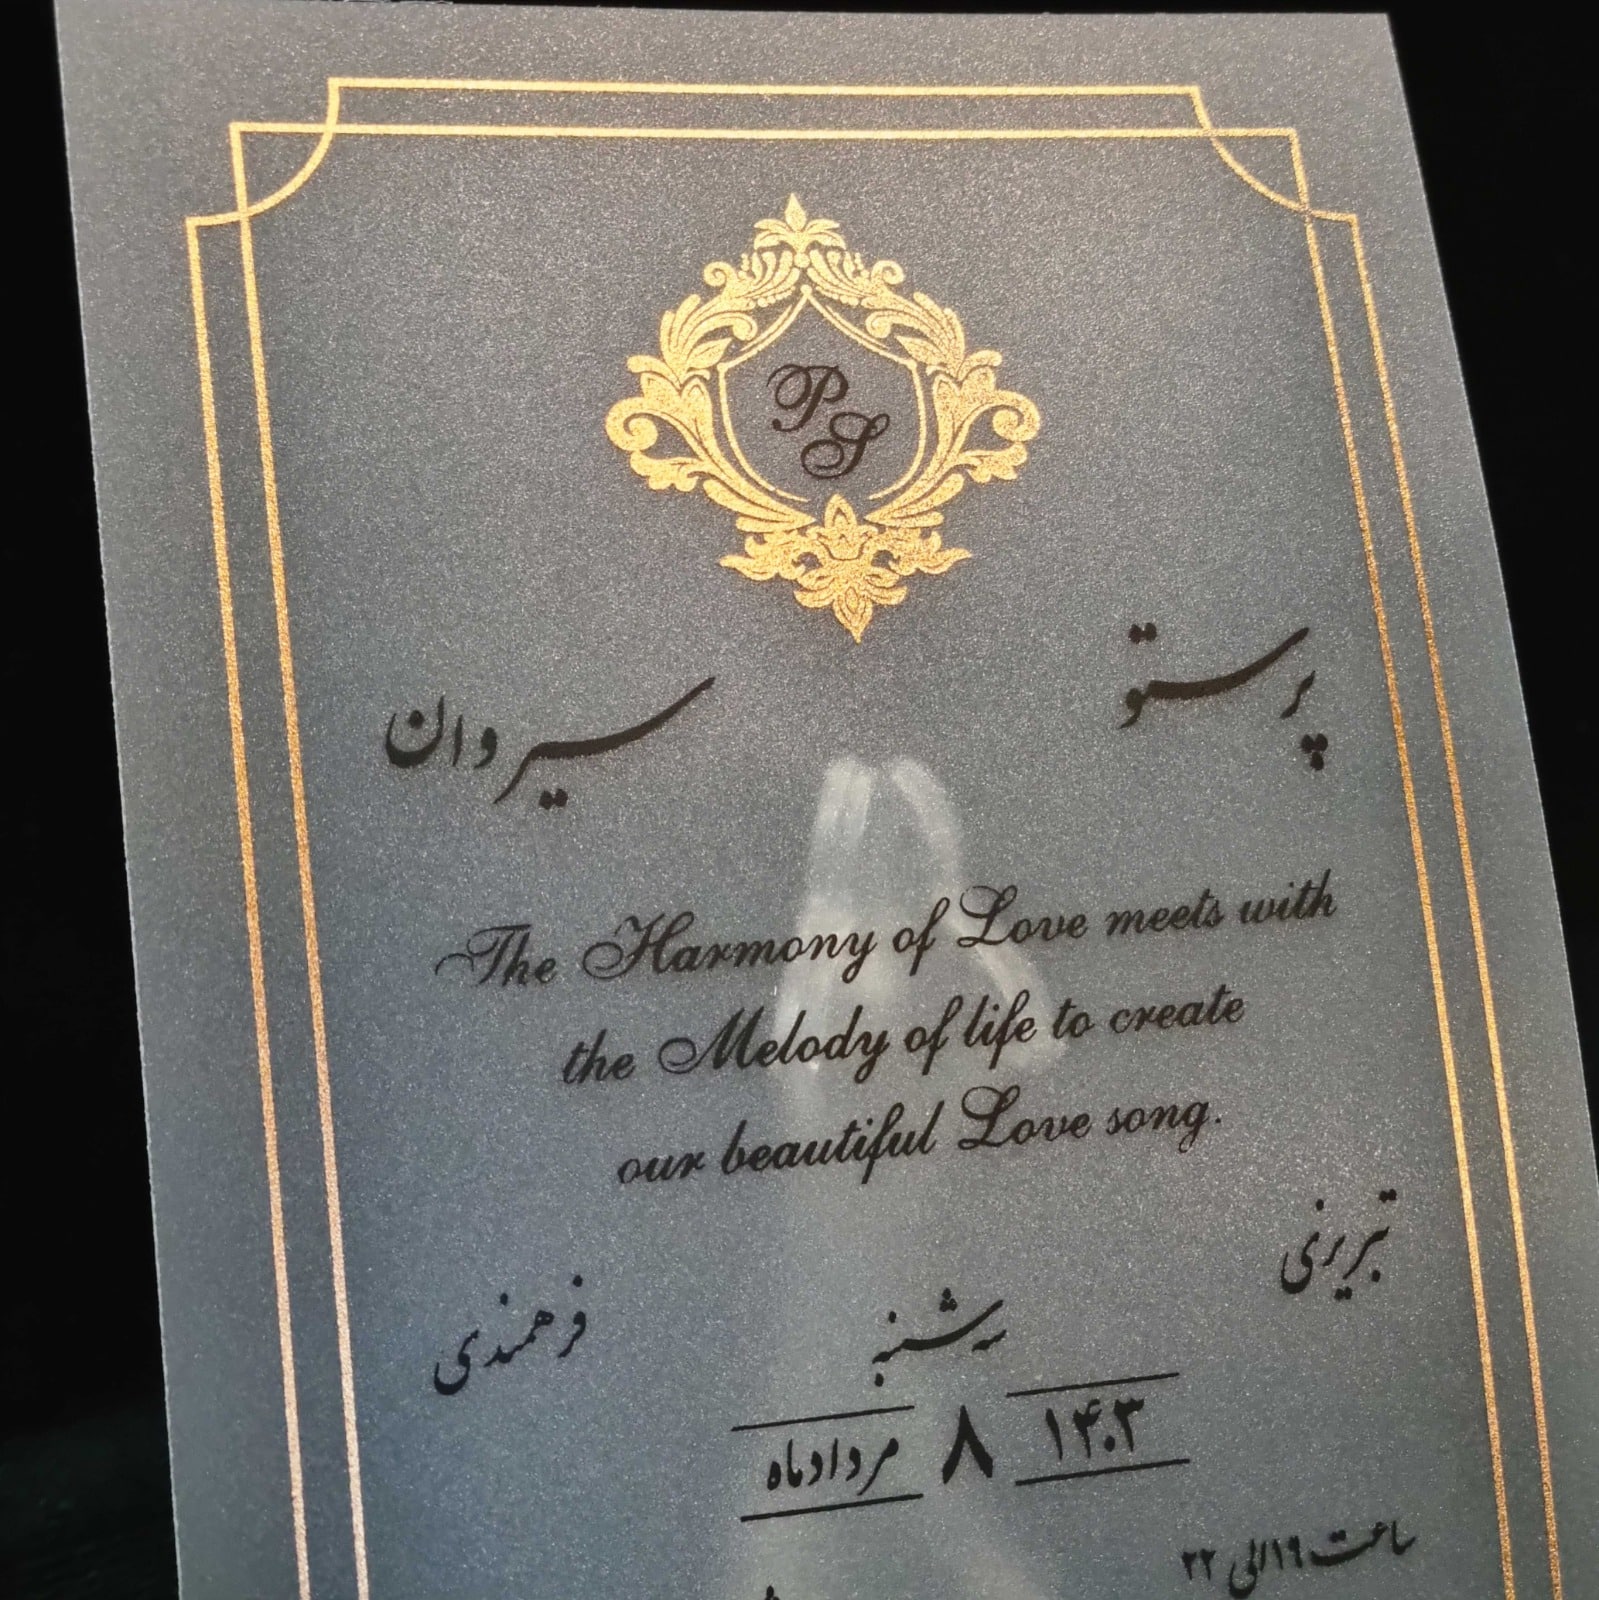 P
S
پرستو سیروان
The Harmony of Love meets with
the Melody of life to create
our beautiful Love song.
تبریزی فرهمندی
سه شنبه
۱۴۰۳ ۸ مردادماه
ساعت ۱۹ الی ۲۲